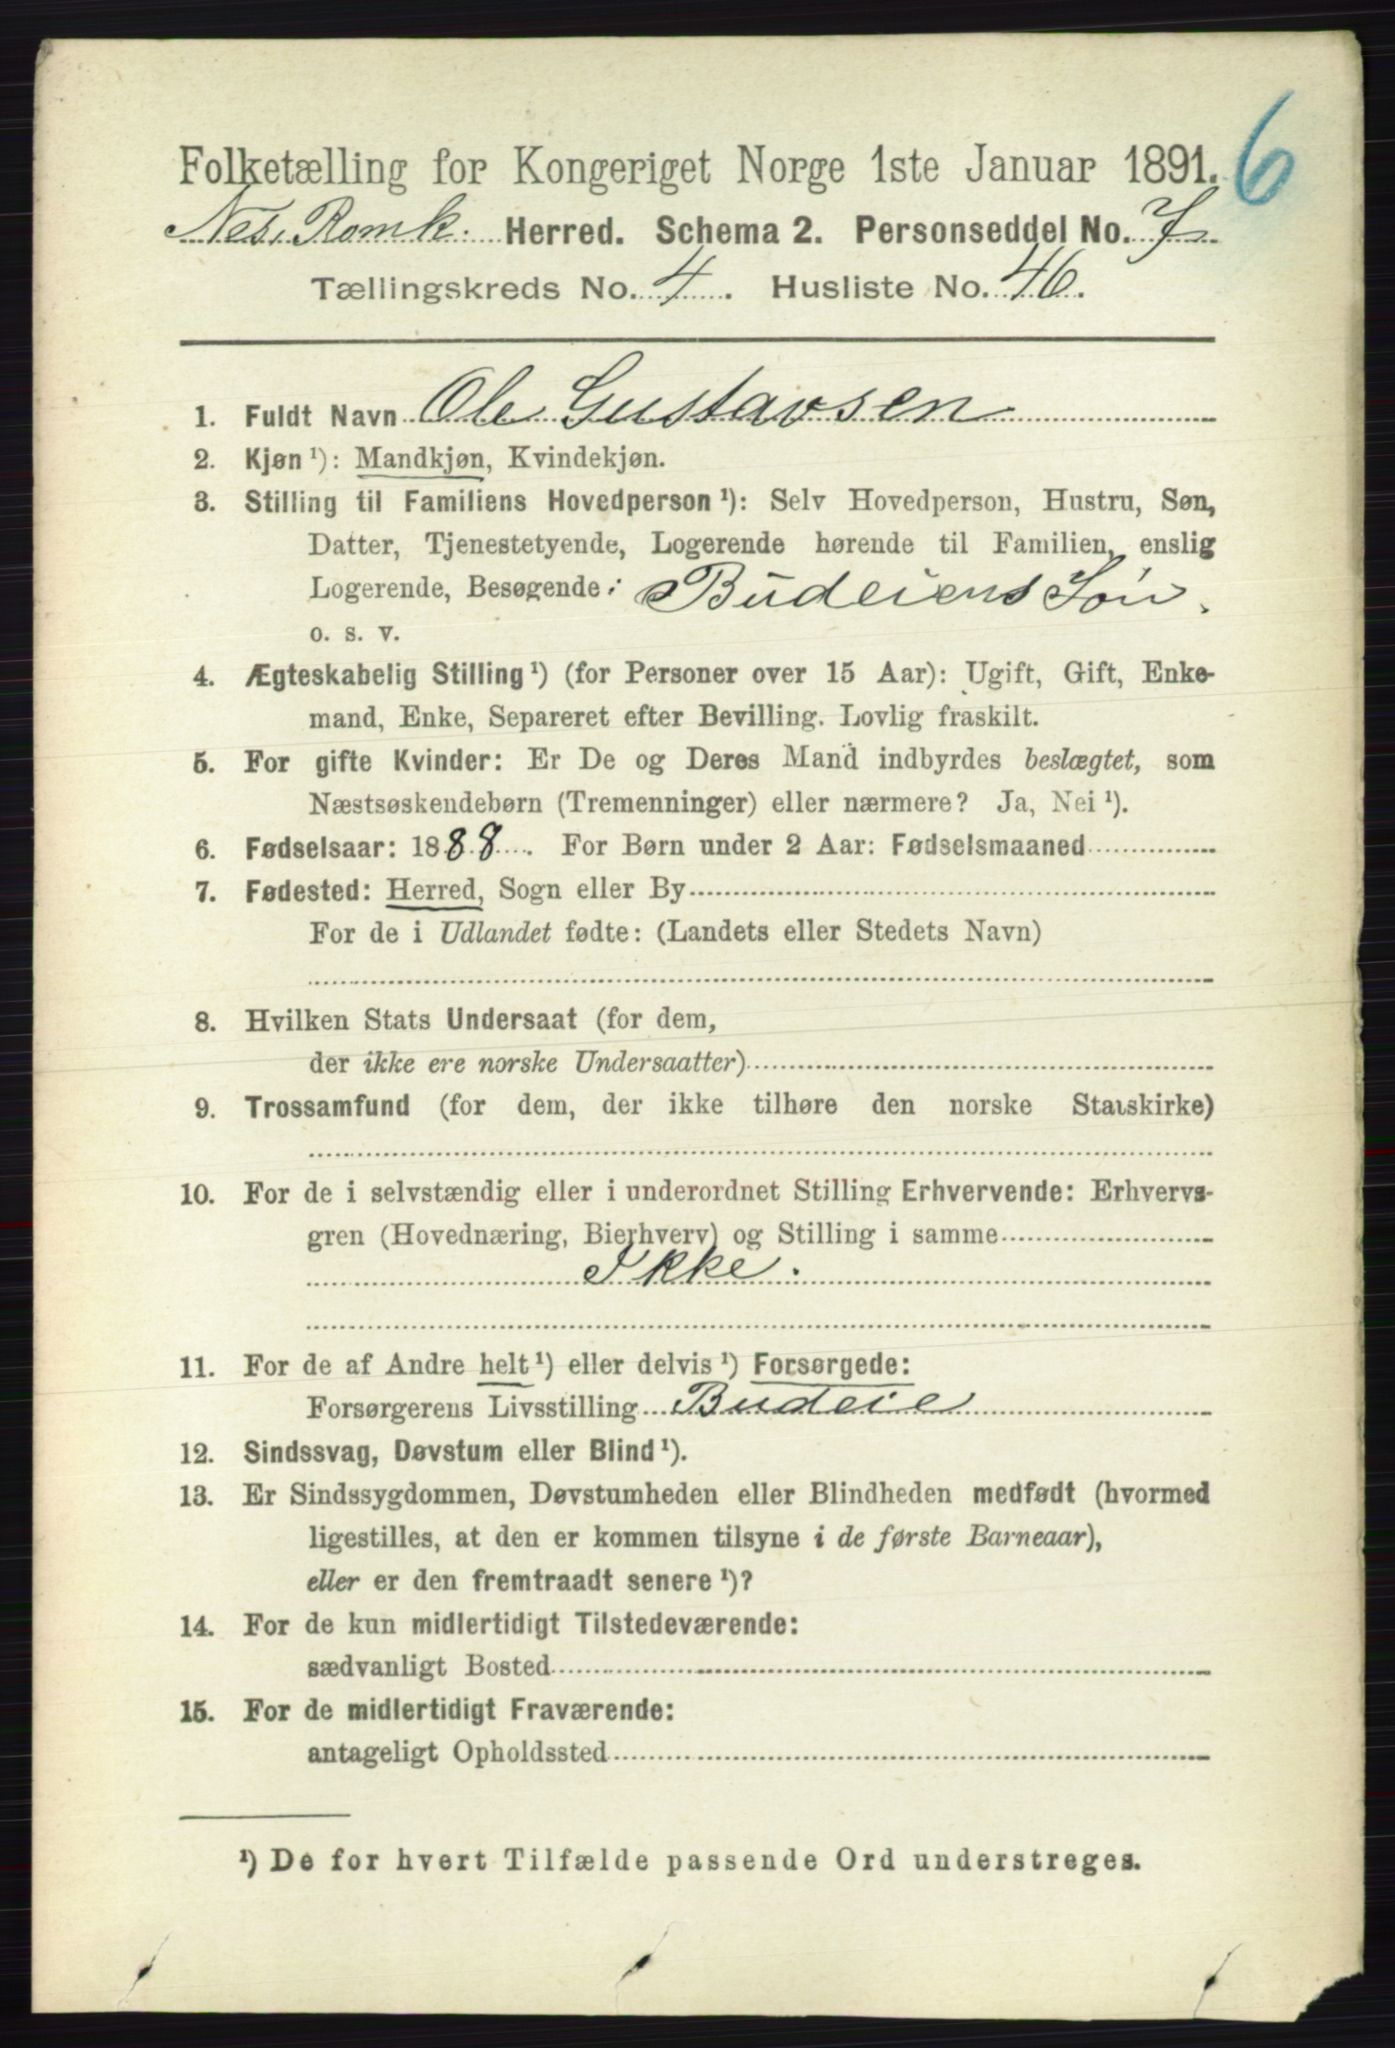 6
Folketælling for Kongeriget Norge 1ste Januar 1891.
Nes, Romk. Herred. Schema 2. Personseddel No. 7
Tællingskreds No. 4. Husliste No. 46.
1. Fuldt Navn Ole Gustavsen
2. Kjøn ¹): Mandkjøn, Kvindekjøn.
3. Stilling til Familiens Hovedperson ¹): Selv Hovedperson, Hustru, Søn,
Datter, Tjenestetyende, Logerende hørende til Familien, enslig
Logerende, Besøgende: Budeiens Søn.
o. s. v.
4. Ægteskabelig Stilling ¹) (for Personer over 15 Aar): Ugift, Gift, Enke-
mand, Enke, Separeret efter Bevilling. Lovlig fraskilt.
5. For gifte Kvinder: Er De og Deres Mand indbyrdes beslægtet, som
Næstsøskendebørn (Tremenninger) eller nærmere? Ja, Nei ¹).
6. Fødselsaar: 1888. For Børn under 2 Aar: Fødselsmaaned
7. Fødested: Herred, Sogn eller By
For de i Udlandet fødte: (Landets eller Stedets Navn)
8. Hvilken Stats Undersaat (for dem,
der ikke ere norske Undersaatter)
9. Trossamfund (for dem, der ikke tilhøre den norske Statskirke)
10. For de i selvstændig eller i underordnet Stilling Erhvervende: Erhvervs-
gren (Hovednæring, Bierhverv) og Stilling i samme
Ikke.
11. For de af Andre helt ¹) eller delvis ¹) Forsørgede:
Forsørgerens Livsstilling Budeie
12. Sindssvag, Døvstum eller Blind ¹).
13. Er Sindssygdommen, Døvstumheden eller Blindheden medfødt (hvormed
ligestilles, at den er kommen tilsyne i de første Barneaar),
eller er den fremtraadt senere ¹)?
14. For de kun midlertidigt Tilstedeværende:
sædvanligt Bosted
15. For de midlertidigt Fraværende:
antageligt Opholdssted
¹) De for hvert Tilfælde passende Ord understreges.